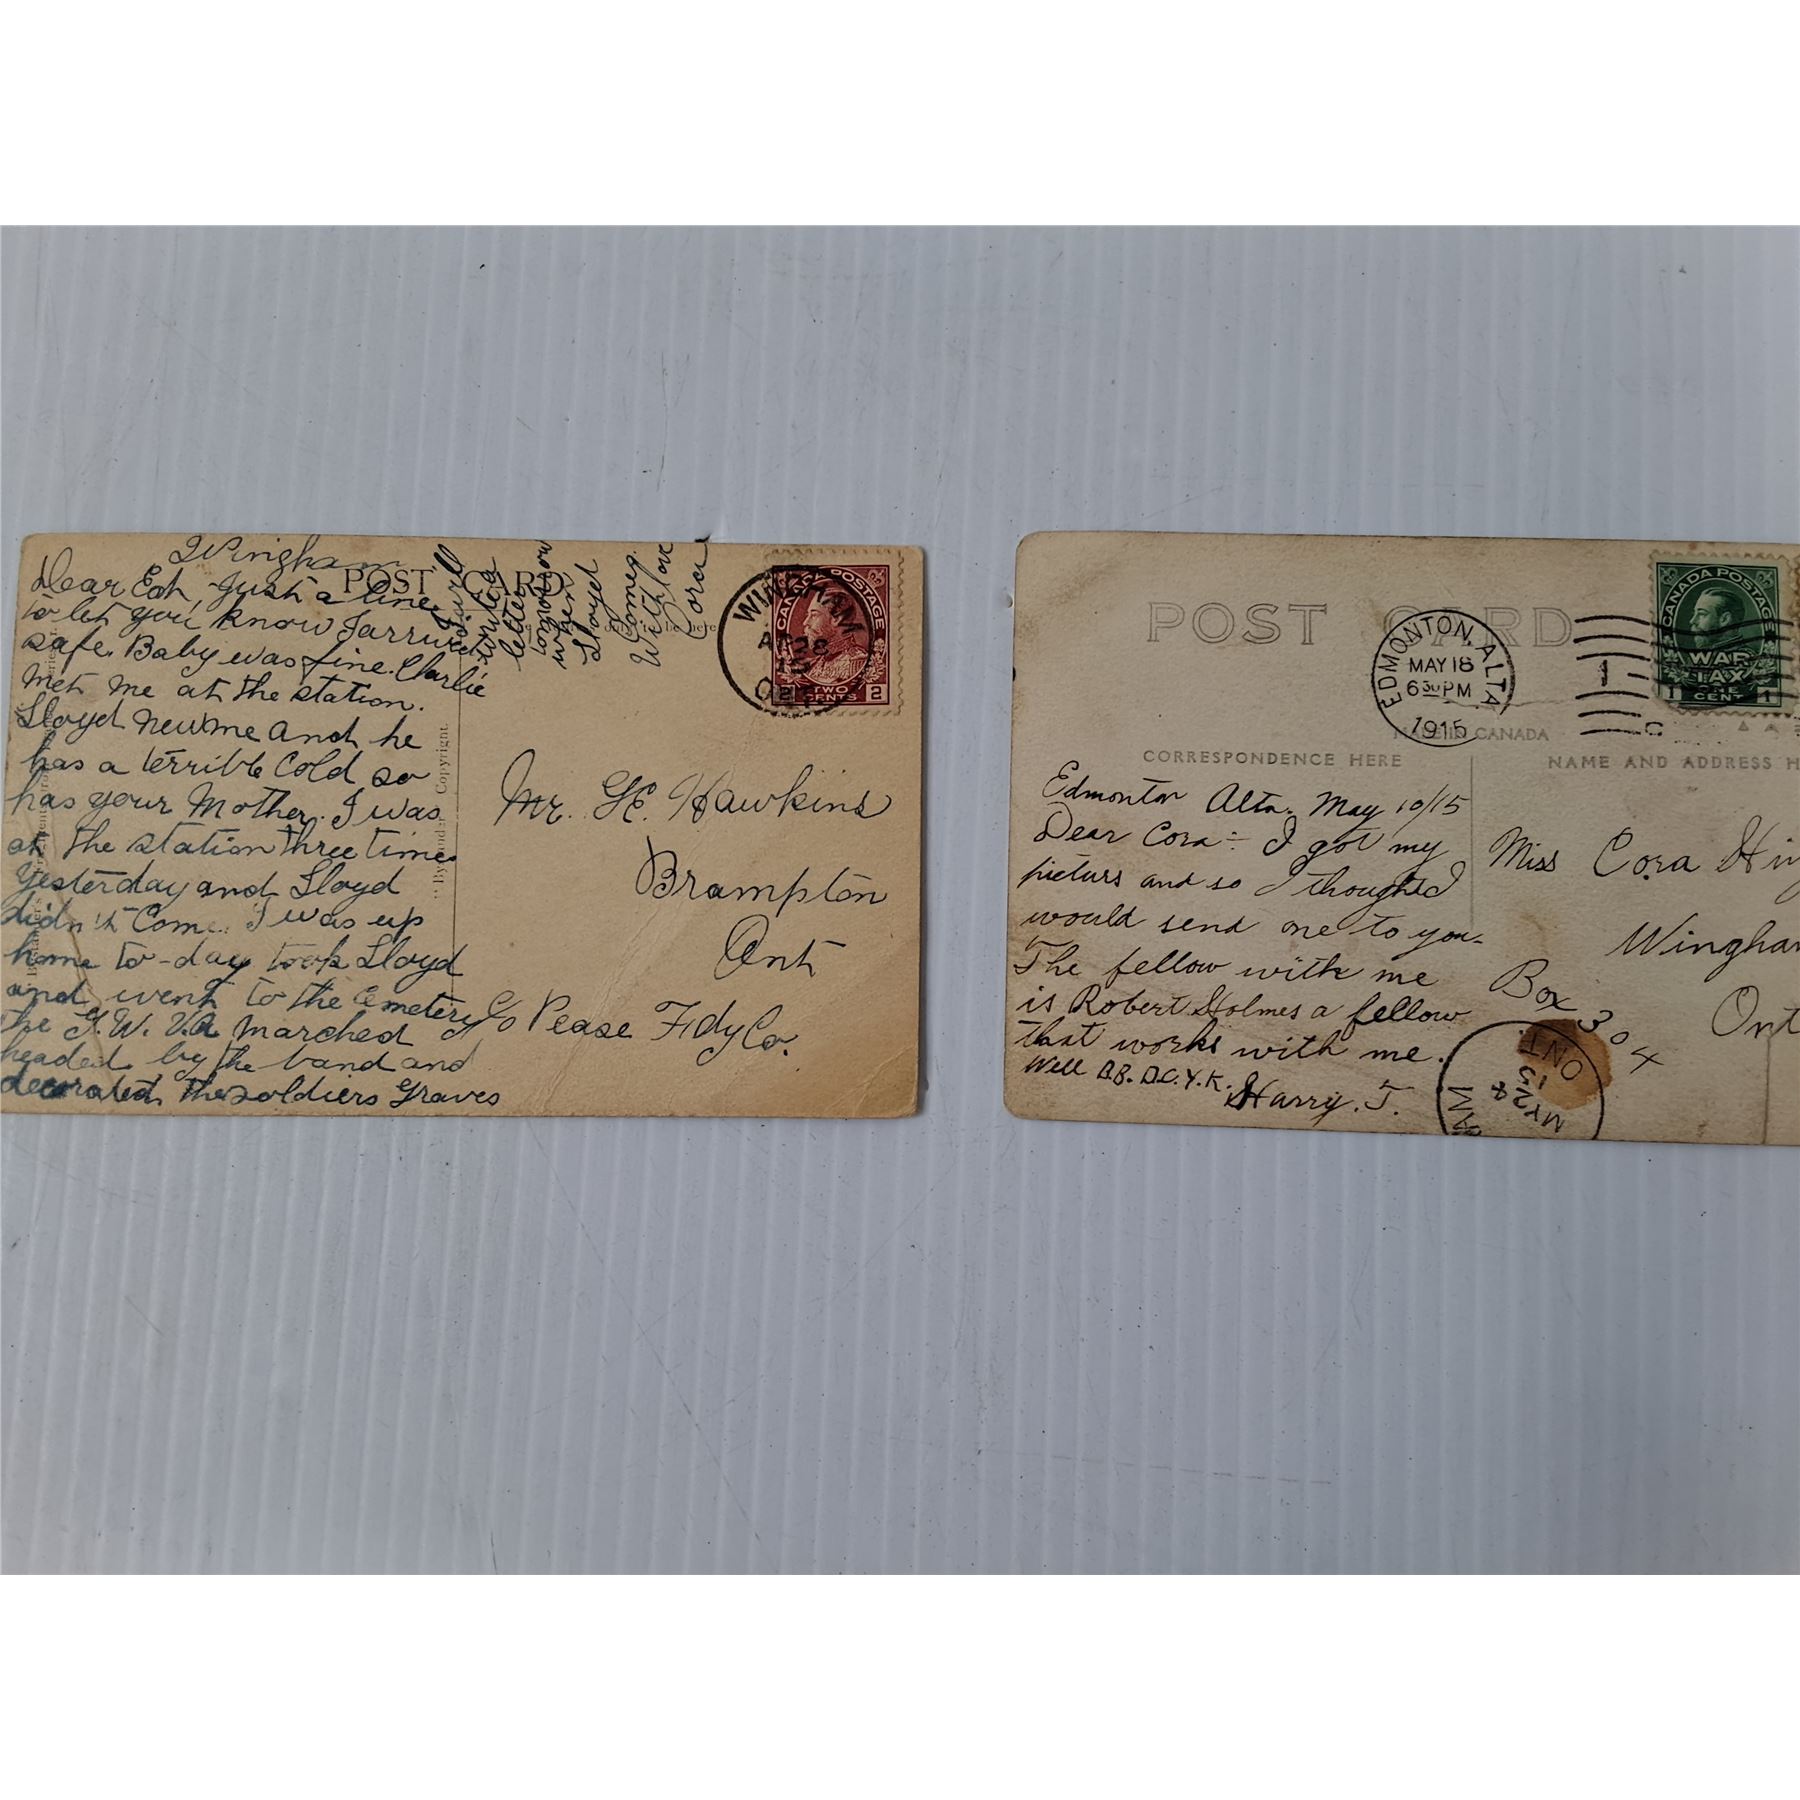 Wingham
POST CARD
Dear Ed, Just a line
to let you know I arrived
safe. Baby was fine. Charlie
met me at the station.
Lloyd new me and he
has a terrible cold so
has your Mother. I was
at the station three time
yesterday and Lloyd
didn't come. I was up
home to-day took Lloyd
and went to the Cemetery
the G.W.V.A marched
headed by the band and
decorated the soldiers graves
I will
write a
letter
tomorrow
when
Lloyd
Comes
With love
Cora
here
Copyright.
WINGHAM
AP 28
ONT
CANADA POSTAGE
2 TWO CENTS 2
Mr. G.E. Hawkins
Brampton
Ont
C/o Pease Fdy Co.
POST CARD
EDMONTON, ALTA
MAY 18
6 30 PM
1915
1
CANADA POSTAGE
WAR
TAX
1 CENT 1
MADE IN CANADA
CORRESPONDENCE HERE
NAME AND ADDRESS H
Edmonton Alta. May 10/15
Dear Cora:- I got my
picturs and so I thought I
would send one to you-
The fellow with me
is Robert Holmes a fellow
that works with me.
Well B.B. D.C.Y.K.
Harry. T.
Miss Cora
Wingham
Ont
Box 304
MY 24
15
ONT.